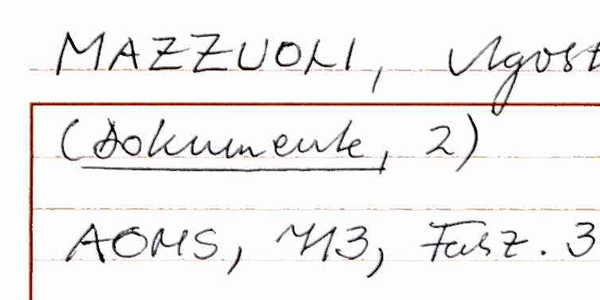 MAZZUOLI, Agost
(Dokumente, 2)
AOMS, 713, Fasz. 3